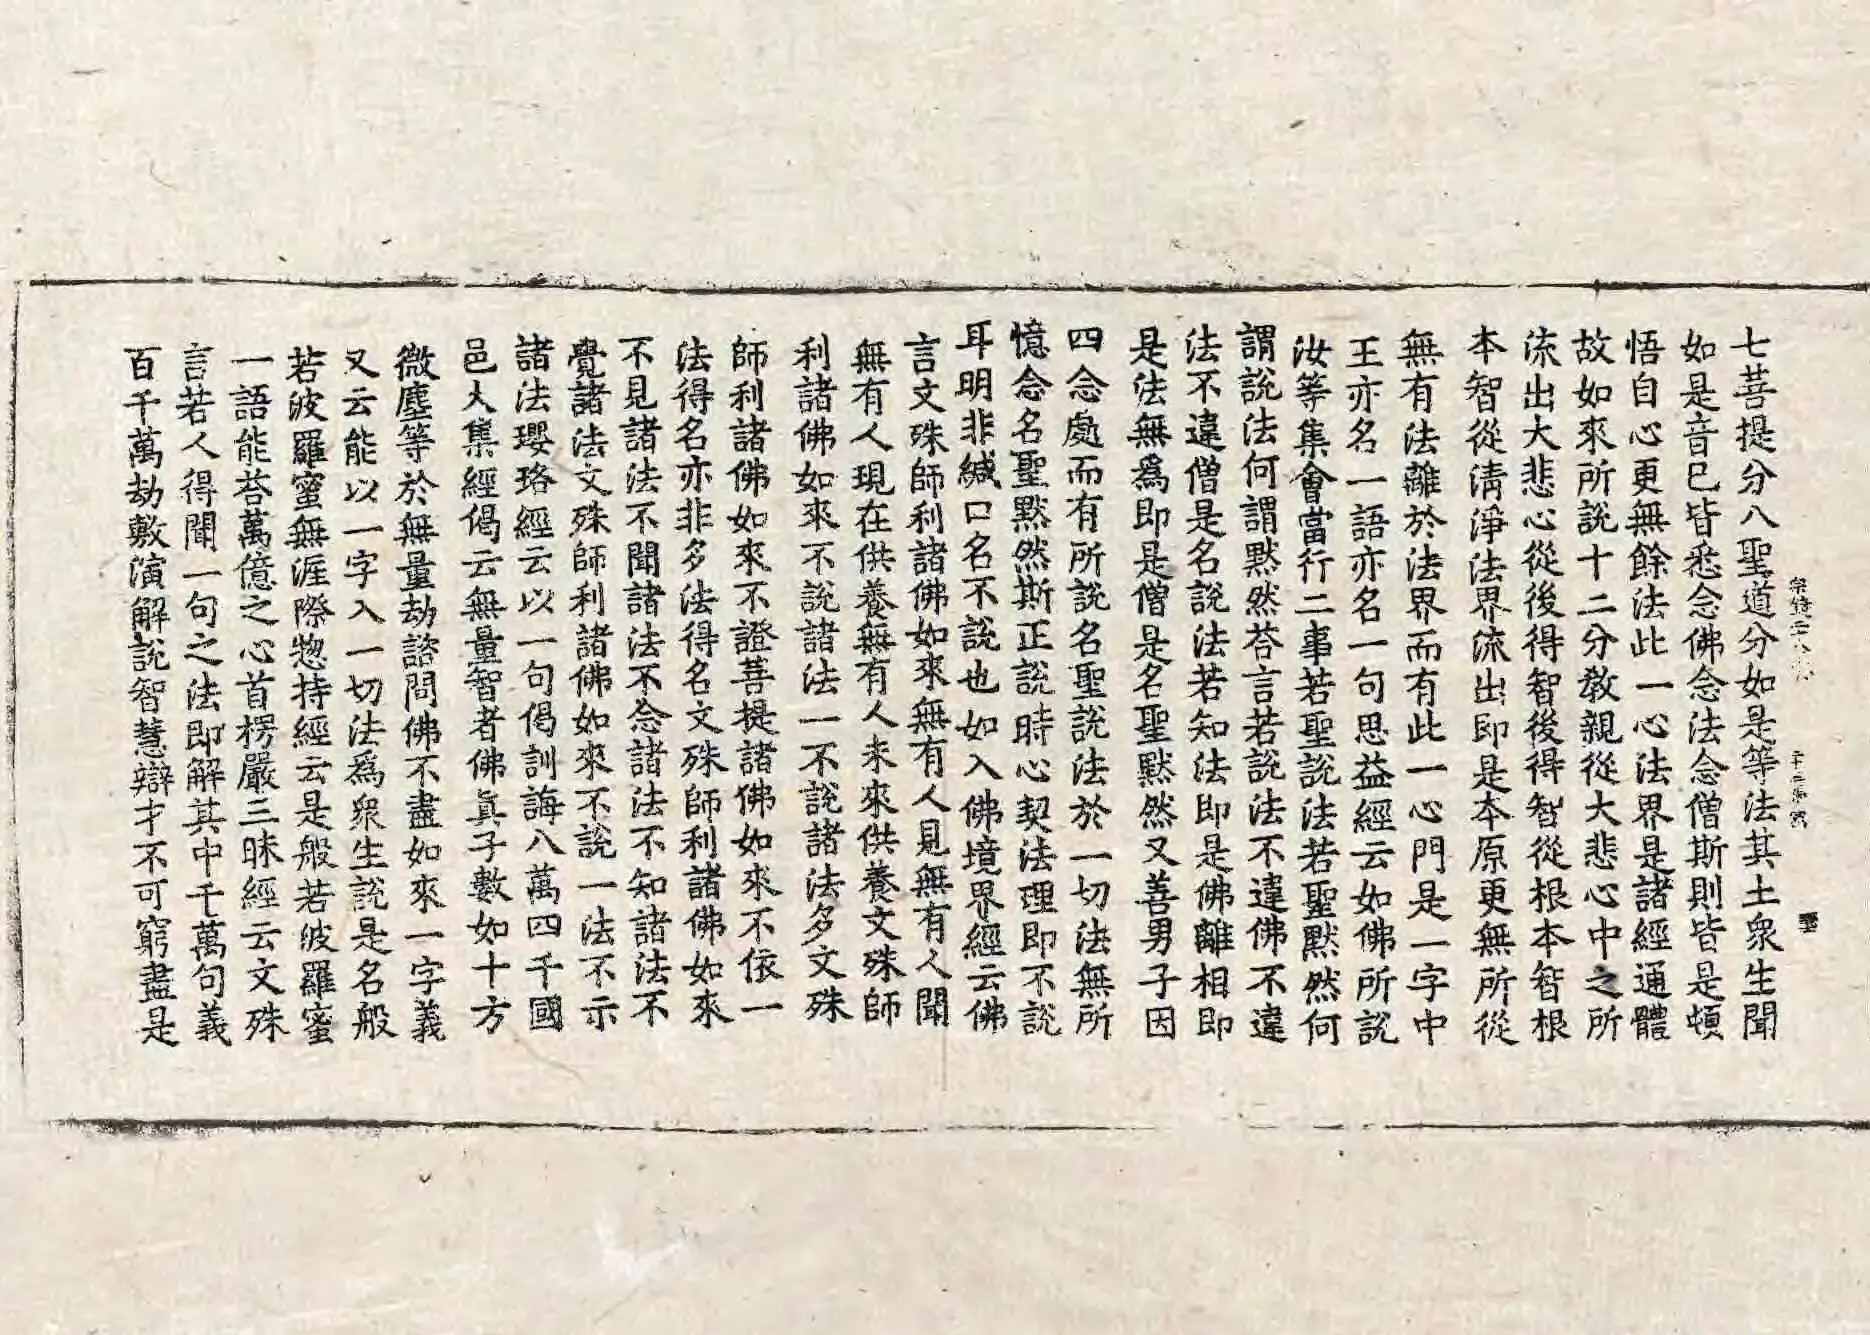 七菩提分八聖道分如是等法其土眾生聞
如是音已皆悉念佛念法念僧斯則皆是頓
悟自心更無餘法此一心法界是諸經通體
故如來所說十二分教親從大悲心中之所
流出大悲心從後得智後得智從根本智根
本智從清淨法界流出即是本原更無所從
無有法離於法界而有此一心門是一字中
王亦名一語亦名一句思益經云如佛所說
汝等集會當行二事若聖說法若聖默然何
謂說法何謂默然荅言若說法不違佛不違
法不違僧是名說法若知法即是佛離相即
是法無為即是僧是名聖默然又善男子因
四念處而有所說名聖說法於一切法無所
憶念名聖默然斯正說時心契法理即不說
耳明非緘口名不說也如入佛境界經云佛
言文殊師利諸佛如來無有人見無有人聞
無有人現在供養無有人未來供養文殊師
利諸佛如來不說諸法一不說諸法多文殊
師利諸佛如來不證菩提諸佛如來不依一
法得名亦非多法得名文殊師利諸佛如來
不見諸法不聞諸法不念諸法不知諸法不
覺諸法文殊師利諸佛如來不說一法不示
諸法瓔珞經云以一句偈訓誨八萬四千國
邑大集經偈云無量智者佛真子數如十方
微塵等於無量劫諮問佛不盡如來一字義
又云能以一字入一切法為眾生說是名般
若波羅蜜無涯際惣持經云是般若波羅蜜
一語能荅萬億之心首楞嚴三昧經云文殊
言若人得聞一句之法即解其中千萬句義
百千萬劫敷演解說智慧辯才不可窮盡是